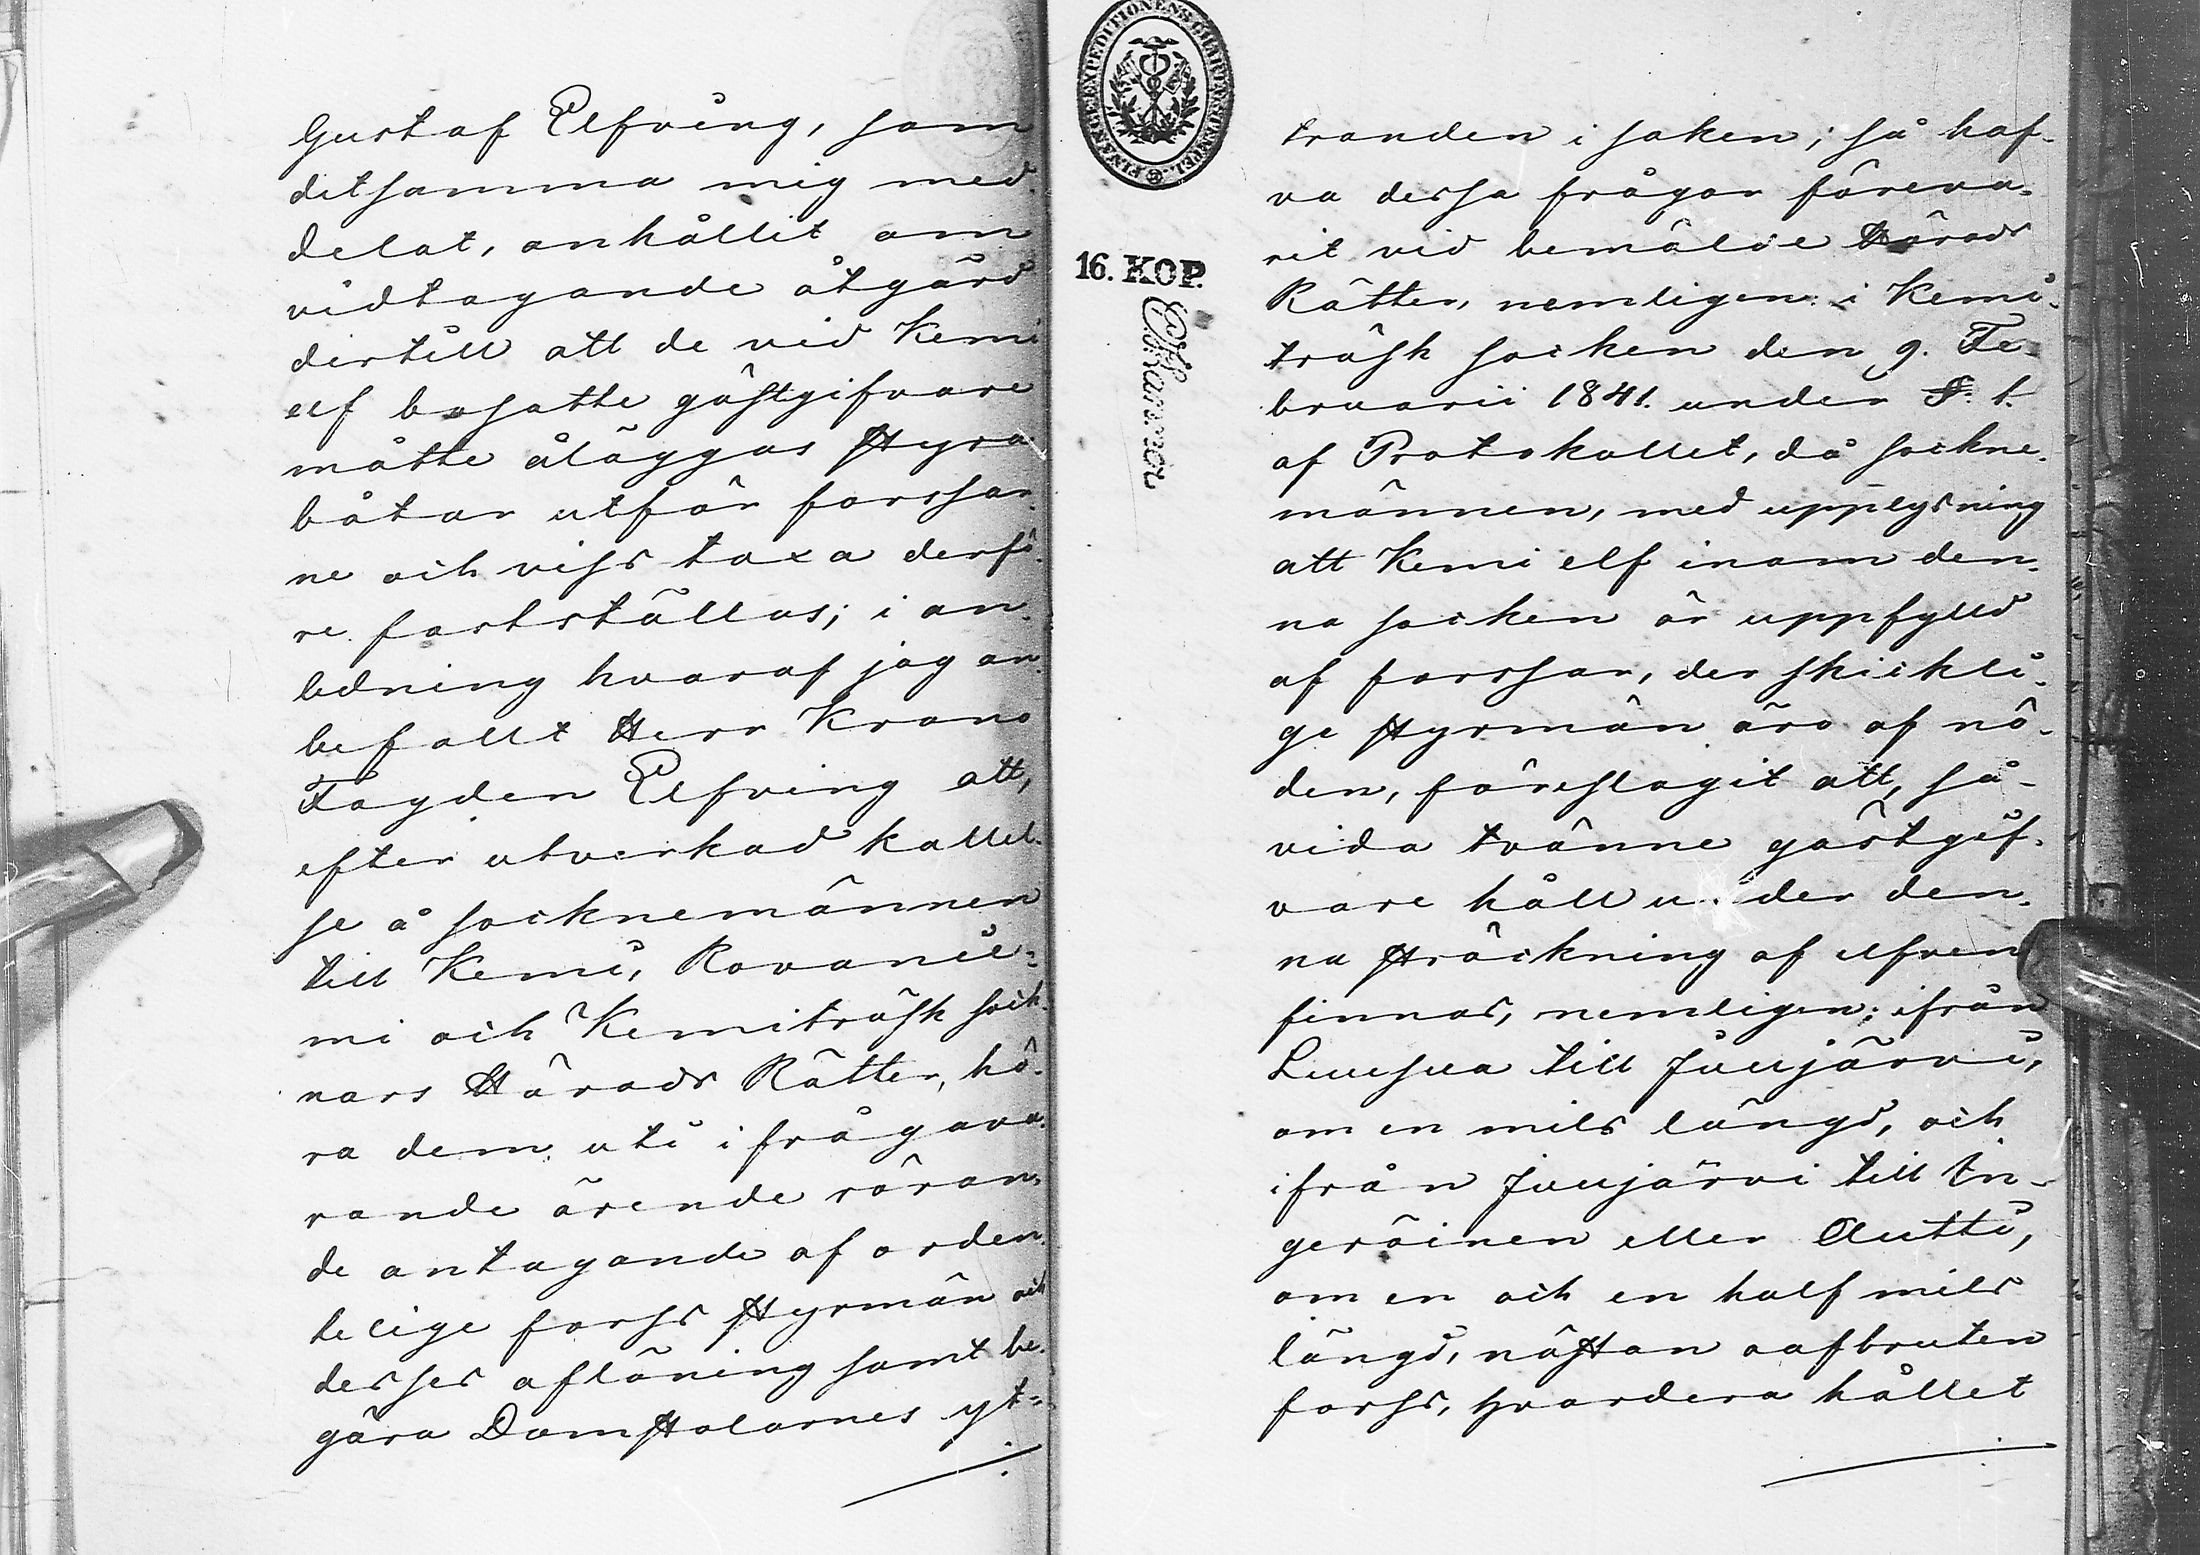 Gustaf Elfving, som
ditsamma mig med-
delat, anhållit om
vidtagande åtgärd
dertill att de vid Kemi
elf bosatte gästgifvare
måtte åläggas styra
båtar utför forssar-
ne och viss taxa derfö-
re fastställas; i an-
ledning hvaraf jag an-
befallt Herr Krono
Fogden Elfving att,
efter utverkad kallel-
se å socknemännen
till Kemi, Rovanie-
mi och Kemiträsk sock-
nars Härads Rätter, hö-
ra dem uti ifrågava-
rande ärende röran-
de antagande af orden-
telige forss styrmän och
desses aflöning samt be-
gära Domstolarnes yt-
FINANCE EXPEDITIONENS CHARTE SIGEL
16. KOP.
tranden i saken; så haf-
va dessa frågor föreva-
rit vid bemälde Härads
Rätter, nemligen: i Kemi-
träsk socken den 9. Fe-
bruarii 1841. under §. 1.
af Protokollet, då sockne-
männen, med upplysning
att Kemi elf inom den-
na socken är uppfylld
af forssar, der skickli-
ge styrmän äro af nö-
den, föreslagit att, så-
vida tvänne gästgif-
vare håll under den-
na sträckning af elfven
finnas, nemligen: ifrån
Luusua till Juujärvi,
om en mils längd, och
ifrån Juujärvi till In-
geröinen eller Autti,
om en och en half mils
längd, nästan oafbruten
forss, hvardera hållet